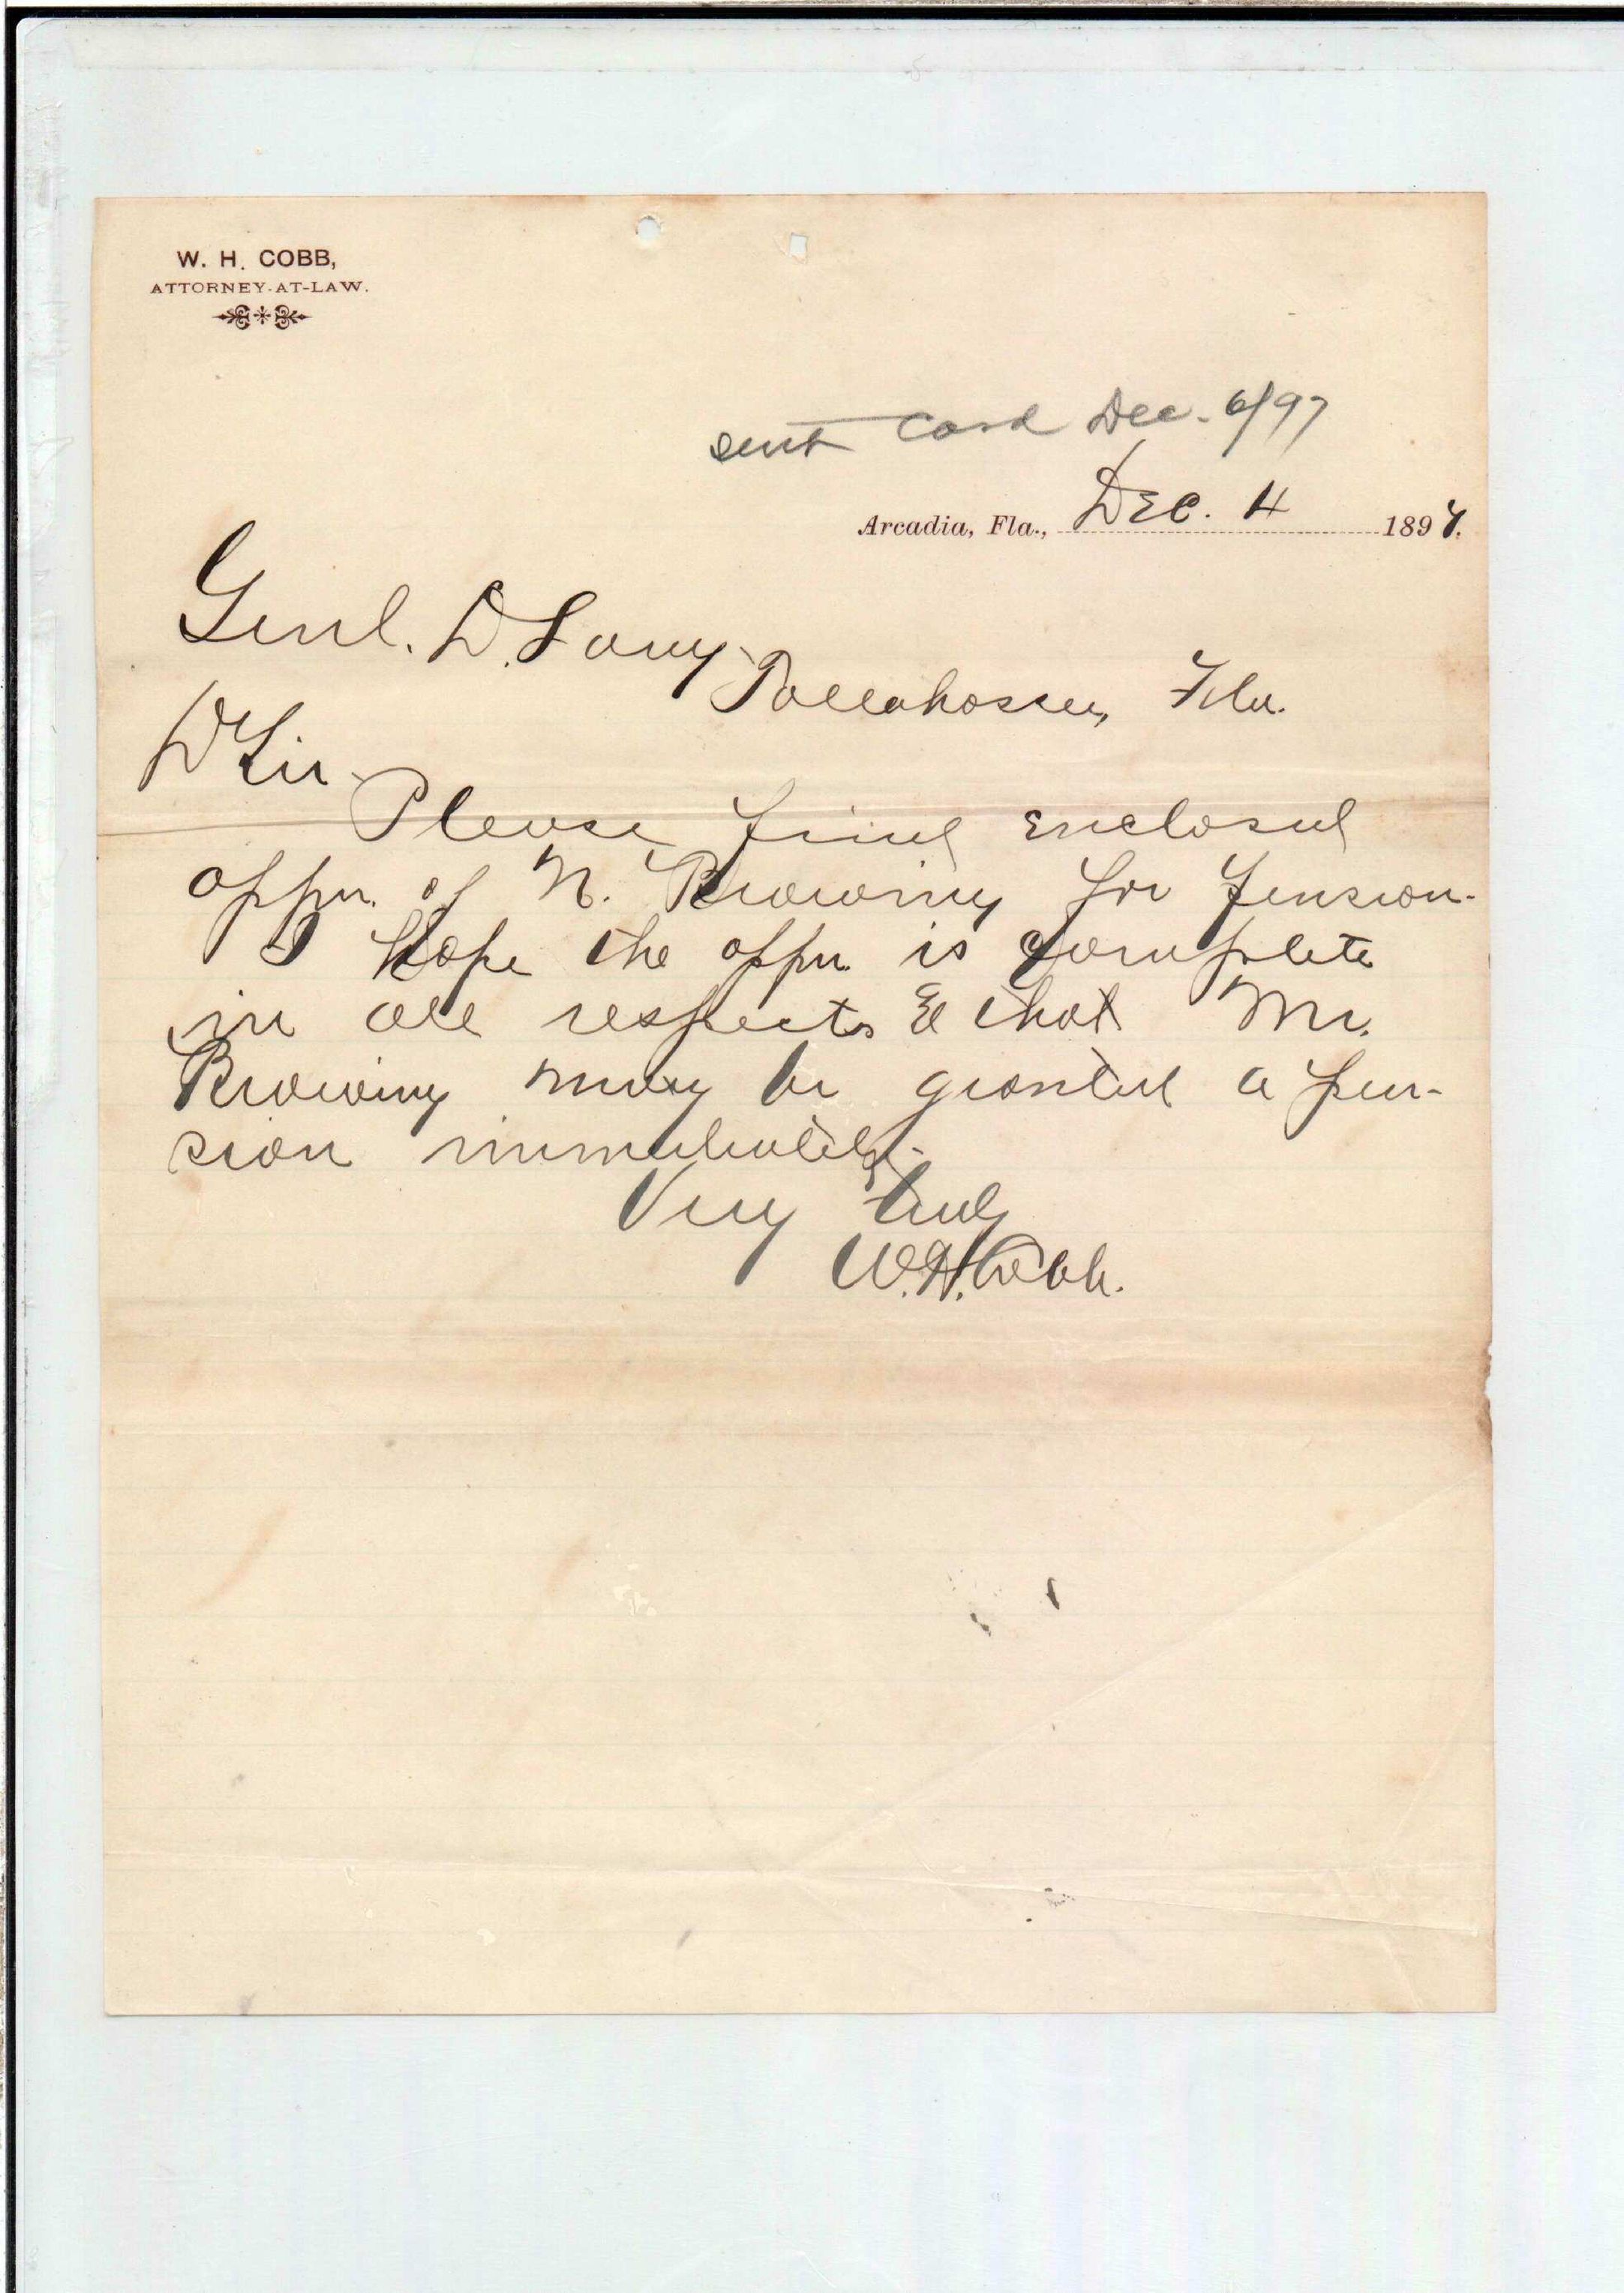 W. H. COBB,
ATTORNEY-AT-LAW.
sent Card Dec. 6/97
Arcadia, Fla., Dec. 4 1897.
Genl. D. Lang
Tallahassee, Fla.
D Sir
Please find enclosed
appn. of N. Browing for Pension.
I hope the appn. is complete
in all respects & that Mr.
Browing may be granted a pen-
sion immediately.
Very truly
W. H. Cobb.